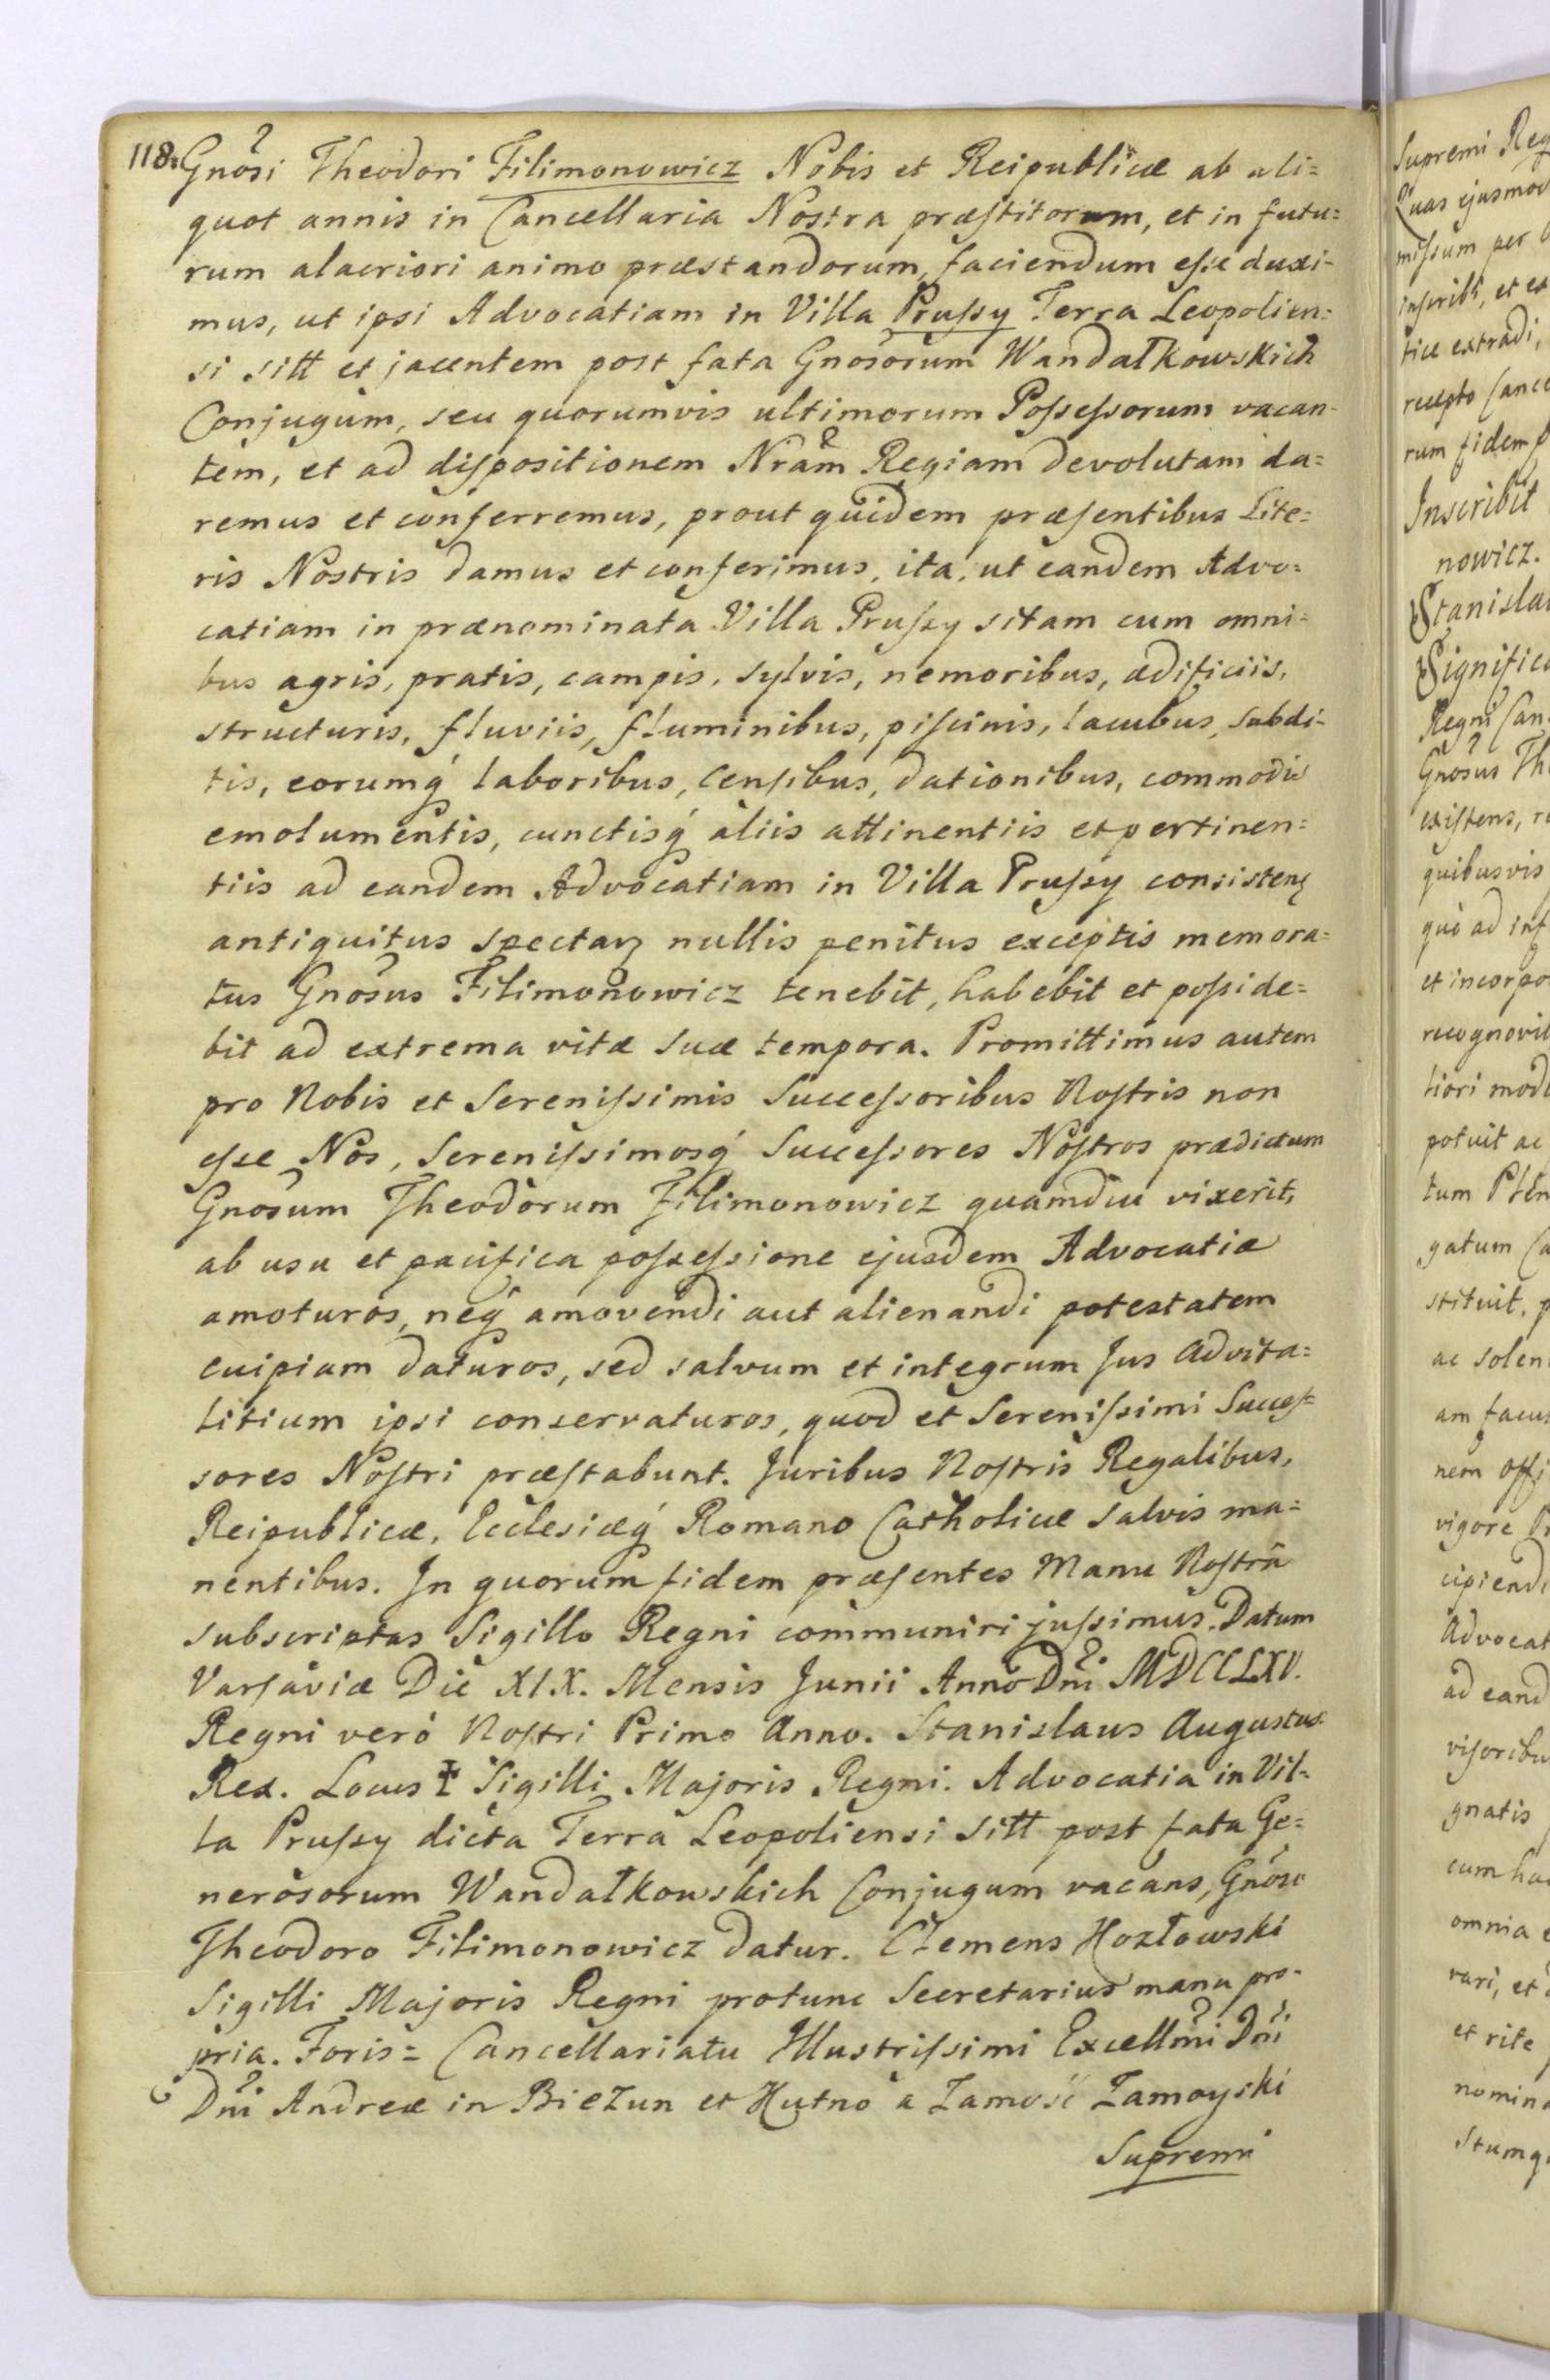 118. Gnosi Theodori Filimonowicz Nobis et Reipublicæ ab ali=
quot annis in Cancellaria Nostra præſtitorum, et in futu=
rum alacriori animo præstandorum, faciendum eſse duxi-
mus, ut ipsi Advocatiam in Villa Pruſsy Terra Leopolien=
si sitt et jacentem post fata Gnosorum Wandałkowskich
Conjugum, seu quorumvis ultimorum Poſseſsorum vacan-
tem, et ad diſpositionem Nram Regiam devolutam da=
remus et conferremus, prout quidem præſentibus Lite=
ris Nostris damus et conferimus, ita, ut eandem Advo=
catiam in prænominata Villa Pruſsy sitam cum omni=
bus agris, pratis, campis, sylvis, nemoribus, ædificiis,
structuris, fluviis, fluminibus, piſcinis, lacubus, subdi-
tis, eorumq́ laboribus, Cenſibus, dationibus, commodis
emolumentis, cunctisq́ aliis attinentiis et pertinen=
tiis ad eandem Advocatiam in Villa Pruſsy consisten
antiquitus spectan nullis penitus exceptis memora=
tus Gnosus Filimonowicz tenebit, habebit et poſside=
bit ad extrema vitæ suæ tempora. Promittimus autem
pro Nobis et Sereniſsimis Succeſsoribus Noſtris non
eſse Nos, Sereniſsimosq́ Succeſsores Noſtros prædictum
Gnosum Theodorum Filimonowicz quamdiu vixerit,
ab usu et pacifica poſseſsione ejusdem Advocatiæ
amoturos, neq́ amovendi aut alienandi potestatem
cuipiam daturos, sed salvum et integrum Jus Advita=
litium ipsi conservaturos, quod et Sereniſsimi Succeſ=
sores Noſtri præſtabunt. Juribus Noſtris Regalibus,
Reipublicæ, Ecclesiæq́ Romano Catholicæ salvis ma=
nentibus. In quorum fidem præſentes Manu Noſtrâ
subscriptas Sigillo Regni communiri juſsimus. Datum
Varſaviæ Die XIX. Mensis Junii Anno Dni MDCCLXV.
Regni veró Noſtri Primo Anno. Stanislaus Augustus
Rex. Locus ‡ Sigilli Majoris Regni. Advocatia in Vil=
la Pruſsy dicta Terra Leopoliensi sitt post fata Ge=
nerosorum Wandałkowskich Conjugum vacans, Gnoso
Theodoro Filimonowicz datur. Clemens Kozłowski
Sigilli Majoris Regni protunc Secretarius manu pro-
pria. Foris= Cancellariatu Illustriſsimi Excellmi Dni
Dni Andreæ in Bieżun et Kutno a Zamość Zamoyski
Supremi
Supremi Reg
Quas ejusmod
miſsum per
inſcribi, et ex
tice extradi,
recepto Cance
rum fidem
Inscribit
nowicz.
Stanisla
Significa
Regni Can
Gnosus Th
exiſtens, r
quibusvis
quò ad inf
et incorpo
recognovit
tiori modo
potuit ac
tum Plen
gatum Ca
stituit, p
ac solen
am facul
nem offi
vigore Pr
cipiendi
Advocat
ad eand
viſoribu
gnatis
cum hac
omnia
vari, et
et rite
nomina
stumq